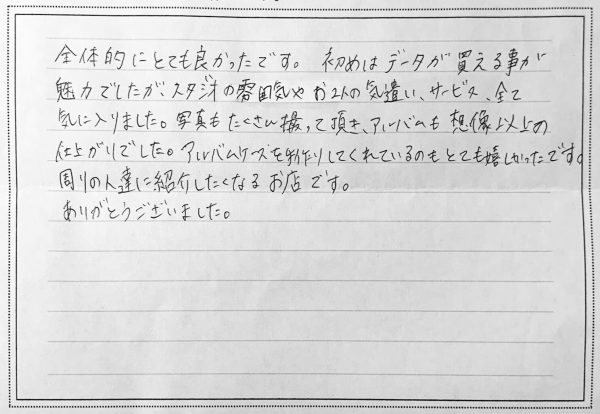 全体的にとても良かったです。 初めはデータが買える事が
魅力でしたが、スタジオの雰囲気やお2人の気遣い、サービス、全て
気に入りました。写真もたくさん撮って頂き、アルバムも想像以上の
仕上がりでした。アルバムケースを手作りしてくれているのもとても嬉しかったです。
周りの人達に紹介したくなるお店です。
ありがとうございました。